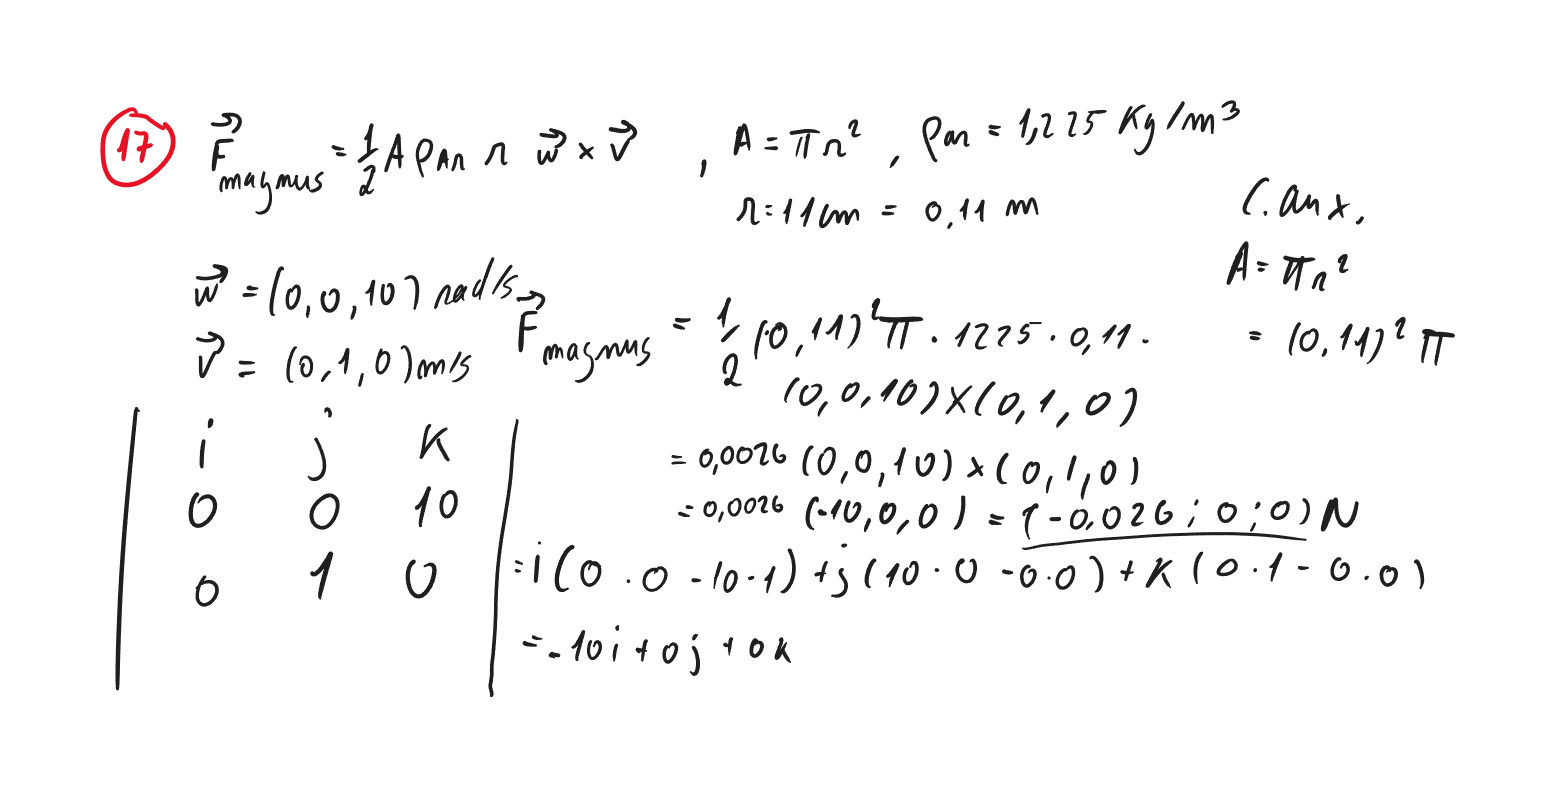 17 F⃗magnus = 1/2 A ρAr r w⃗ × v⃗ , A = πr² , ρar = 1,225 Kg/m³
r = 11 cm = 0,11 m
C. aux.
A = πr²
= (0,11)² π
w⃗ = (0,0,10) rad/s
v⃗ = (0,1,0) m/s
F⃗magnus = 1/2 (0,11)² π · 1225 · 0,11 ·
(0,0,10) × (0,1,0)
= 0,0026 (0,0,10) × (0,1,0)
= 0,0026 (-10,0,0) = (-0,026; 0; 0) N
| i j K |
| 0 0 10 |
| 0 1 0 |
= i (0 · 0 - 10 · 1) + j (10 · 0 - 0 · 0) + K (0 · 1 - 0 · 0)
= -10 i + 0 j + 0 K